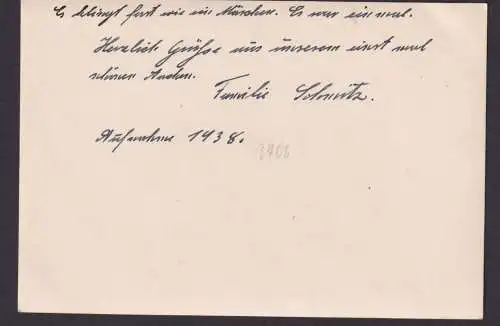 Es klingt fast wie ein Märchen. Es war einmal.
Herzliche Grüße aus unserem einst mal
schönen Aachen.
Familie Schmitz.
Aufnahme 1938.
3706